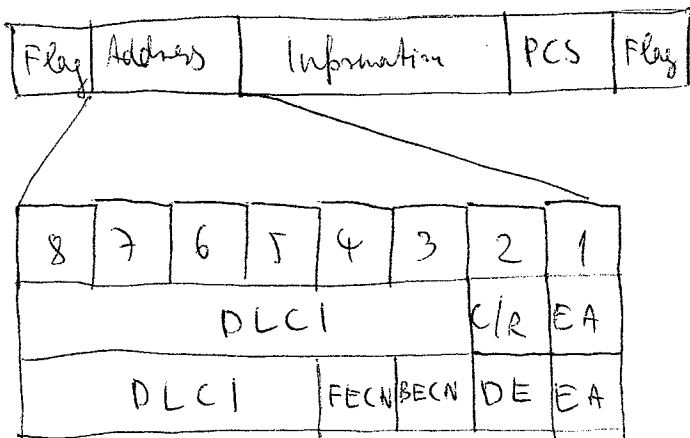 Flag Address Information PCS Flag
8 7 6 5 4 3 2 1
DLCI C/R EA
DLCI FECN BECN DE EA